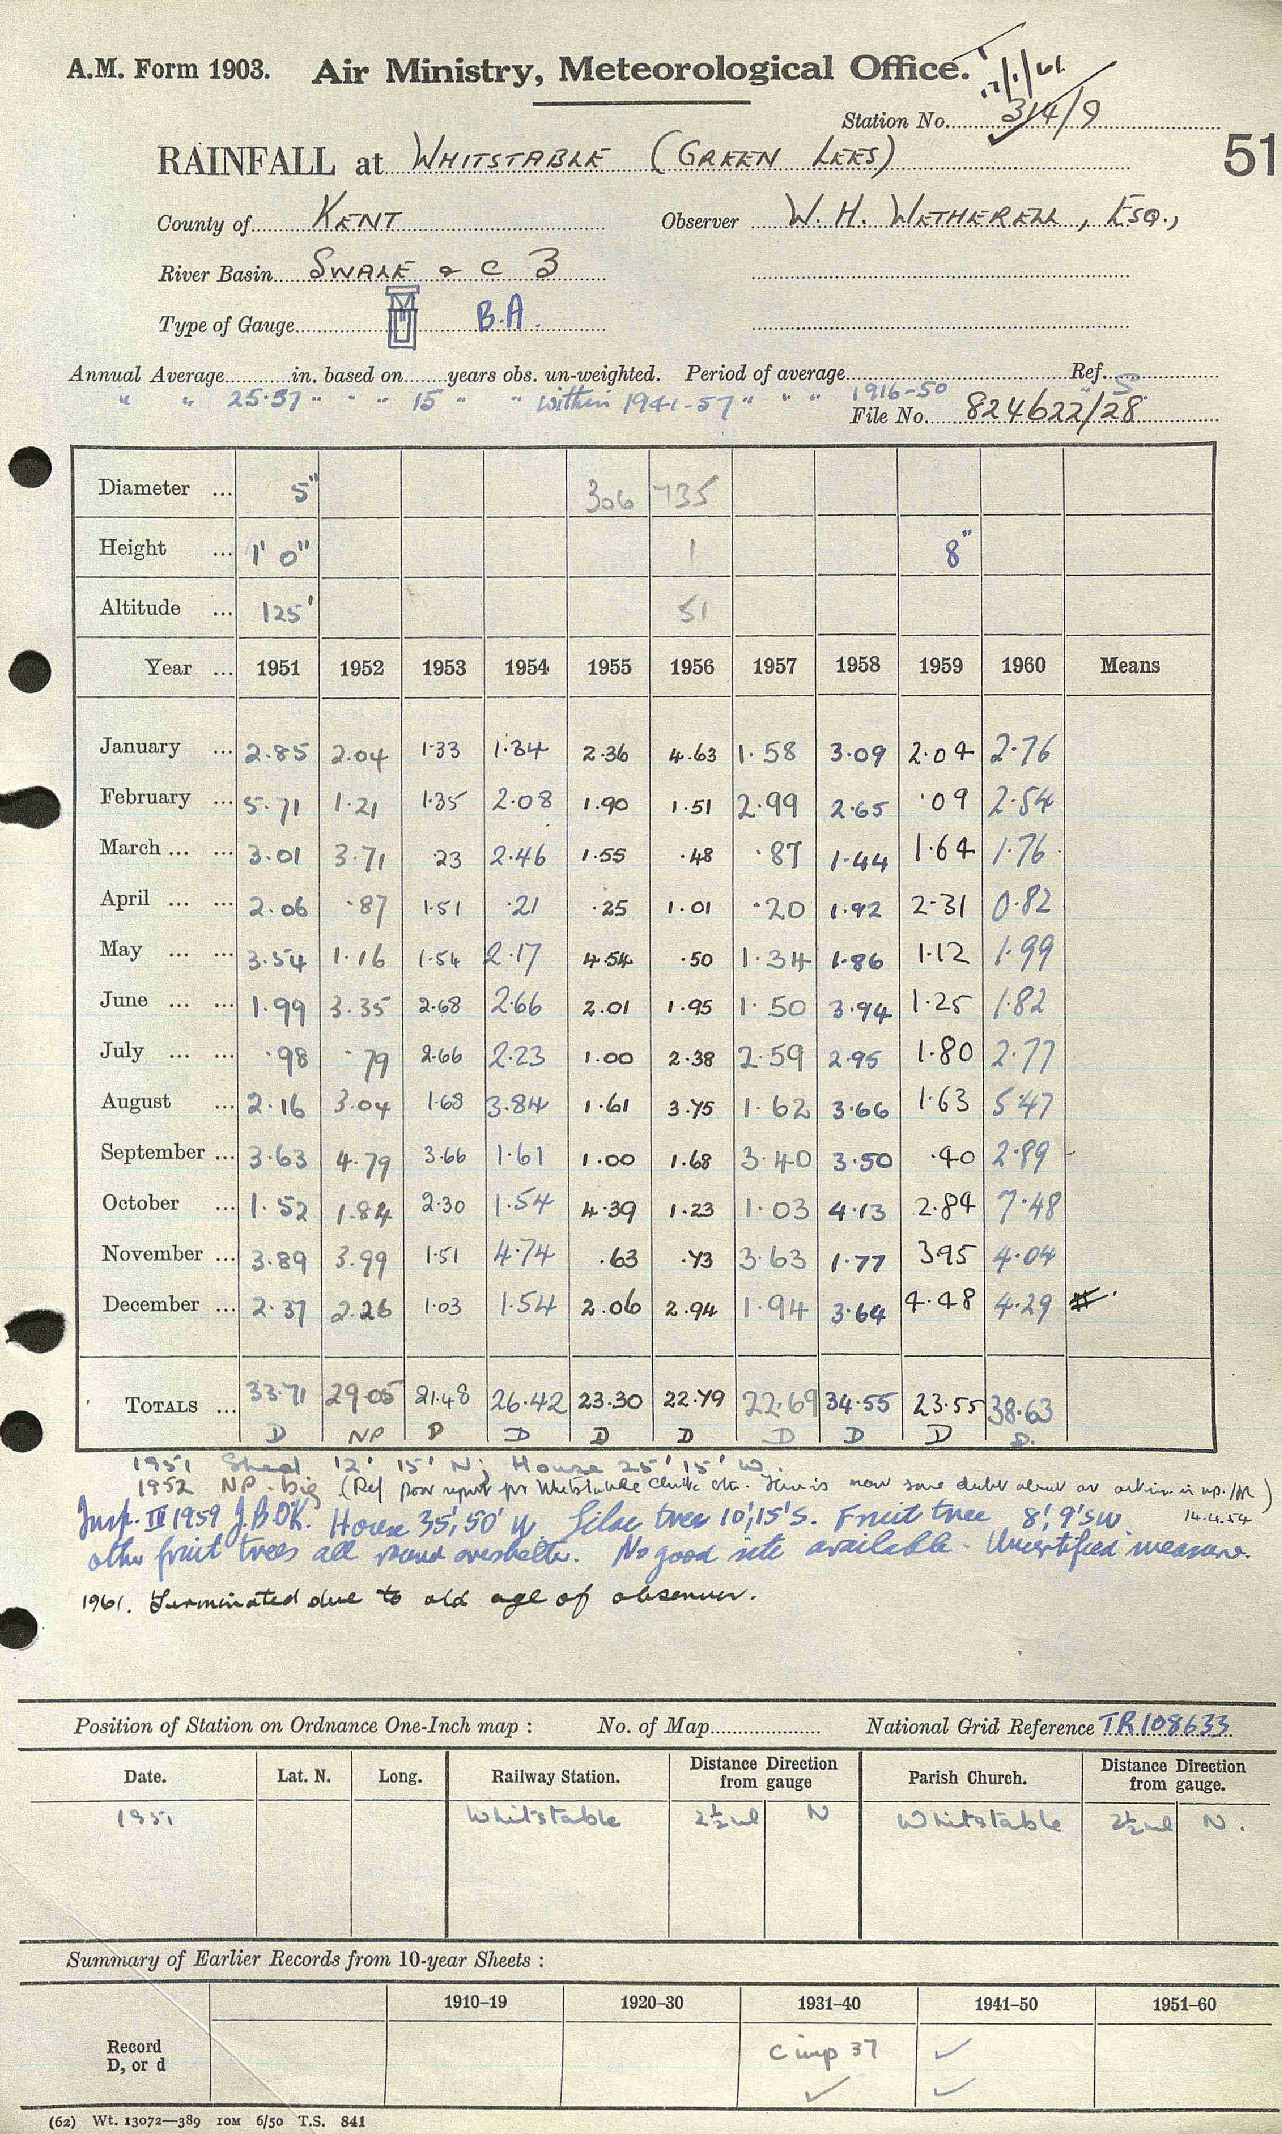 A.M. Form 1903. Air Ministry, Meteorological Office.
Station No. 314/9
RAINFALL at WHITSTABLE (GREEN LEES)
51
County of KENT Observer W. H. WETHERELL, ESQ.,
River Basin SWALE & C 3
Type of Gauge B.A.
Annual Average in. based on years obs. un-weighted. Period of average Ref.
" " 25.57 " " " 15 " " within 1941-57 " " " 1916-50 " S
File No. 824622/28
Diameter ... 5" 306 735
Height ... 1' 0" 1 8"
Altitude ... 125' 51
Year ... 1951 1952 1953 1954 1955 1956 1957 1958 1959 1960 Means
January ... 2.85 2.04 1.33 1.34 2.36 4.63 1.58 3.09 2.04 2.76
February ... 5.71 1.21 1.35 2.08 1.90 1.51 2.99 2.65 .09 2.54
March ... ... 3.01 3.71 .23 2.46 1.55 .48 .87 1.44 1.64 1.76
April ... ... 2.06 .87 1.51 .21 .25 1.01 .20 1.92 2.31 0.82
May ... ... 3.54 1.16 1.54 2.17 4.54 .50 1.34 1.86 1.12 1.99
June ... ... 1.99 3.35 2.68 2.66 2.01 1.95 1.50 3.94 1.25 1.82
July ... ... .98 .79 2.66 2.23 1.00 2.38 2.59 2.95 1.80 2.77
August ... 2.16 3.04 1.68 3.84 1.61 3.75 1.62 3.66 1.63 5.47
September ... 3.63 4.79 3.66 1.61 1.00 1.68 3.40 3.50 .40 2.89
October ... 1.52 1.84 2.30 1.54 4.39 1.23 1.03 4.13 2.84 7.48
November ... 3.89 3.99 1.51 4.74 .63 .73 3.63 1.77 3.95 4.04
December ... 2.37 2.26 1.03 1.54 2.06 2.94 1.94 3.64 4.48 4.29
TOTALS ... 33.71 29.05 21.48 26.42 23.30 22.79 22.69 34.55 23.55 38.63
D NP D D D D D D D D.
1951 Shed 12' 15' N; House 25' 15' W.
1952 NP. big (Ref poor report for Whitstable There is now some doubt about
14.4.54
Insp. III 1959 J.B.O'K. House 35', 50' W. Lilac tree 10', 15' S. Fruit tree 8', 9' SW
other fruit trees all round No good site available. Uncertified measure.
1961. Terminated due to old age of observer.
Position of Station on Ordnance One-Inch map : No. of Map National Grid Reference TR108633
Date. Lat. N. Long. Railway Station. Distance Direction from gauge Parish Church. Distance Direction from gauge.
1951 Whitstable 2½ml N Whitstable 2½ml N.
Summary of Earlier Records from 10-year Sheets :
1910–19 1920–30 1931–40 1941–50 1951–60
Record D, or d C inp 37 ✓
✓ ✓
(62) Wt. 13072—389 10M 6/50 T.S. 841